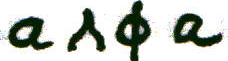 αλφα